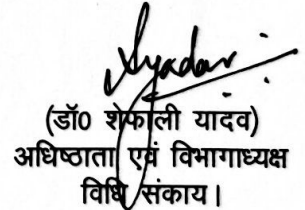 Syadav
(डॉ0 शेफाली यादव)
अधिष्ठाता एवं विभागाध्यक्ष
विधि संकाय।